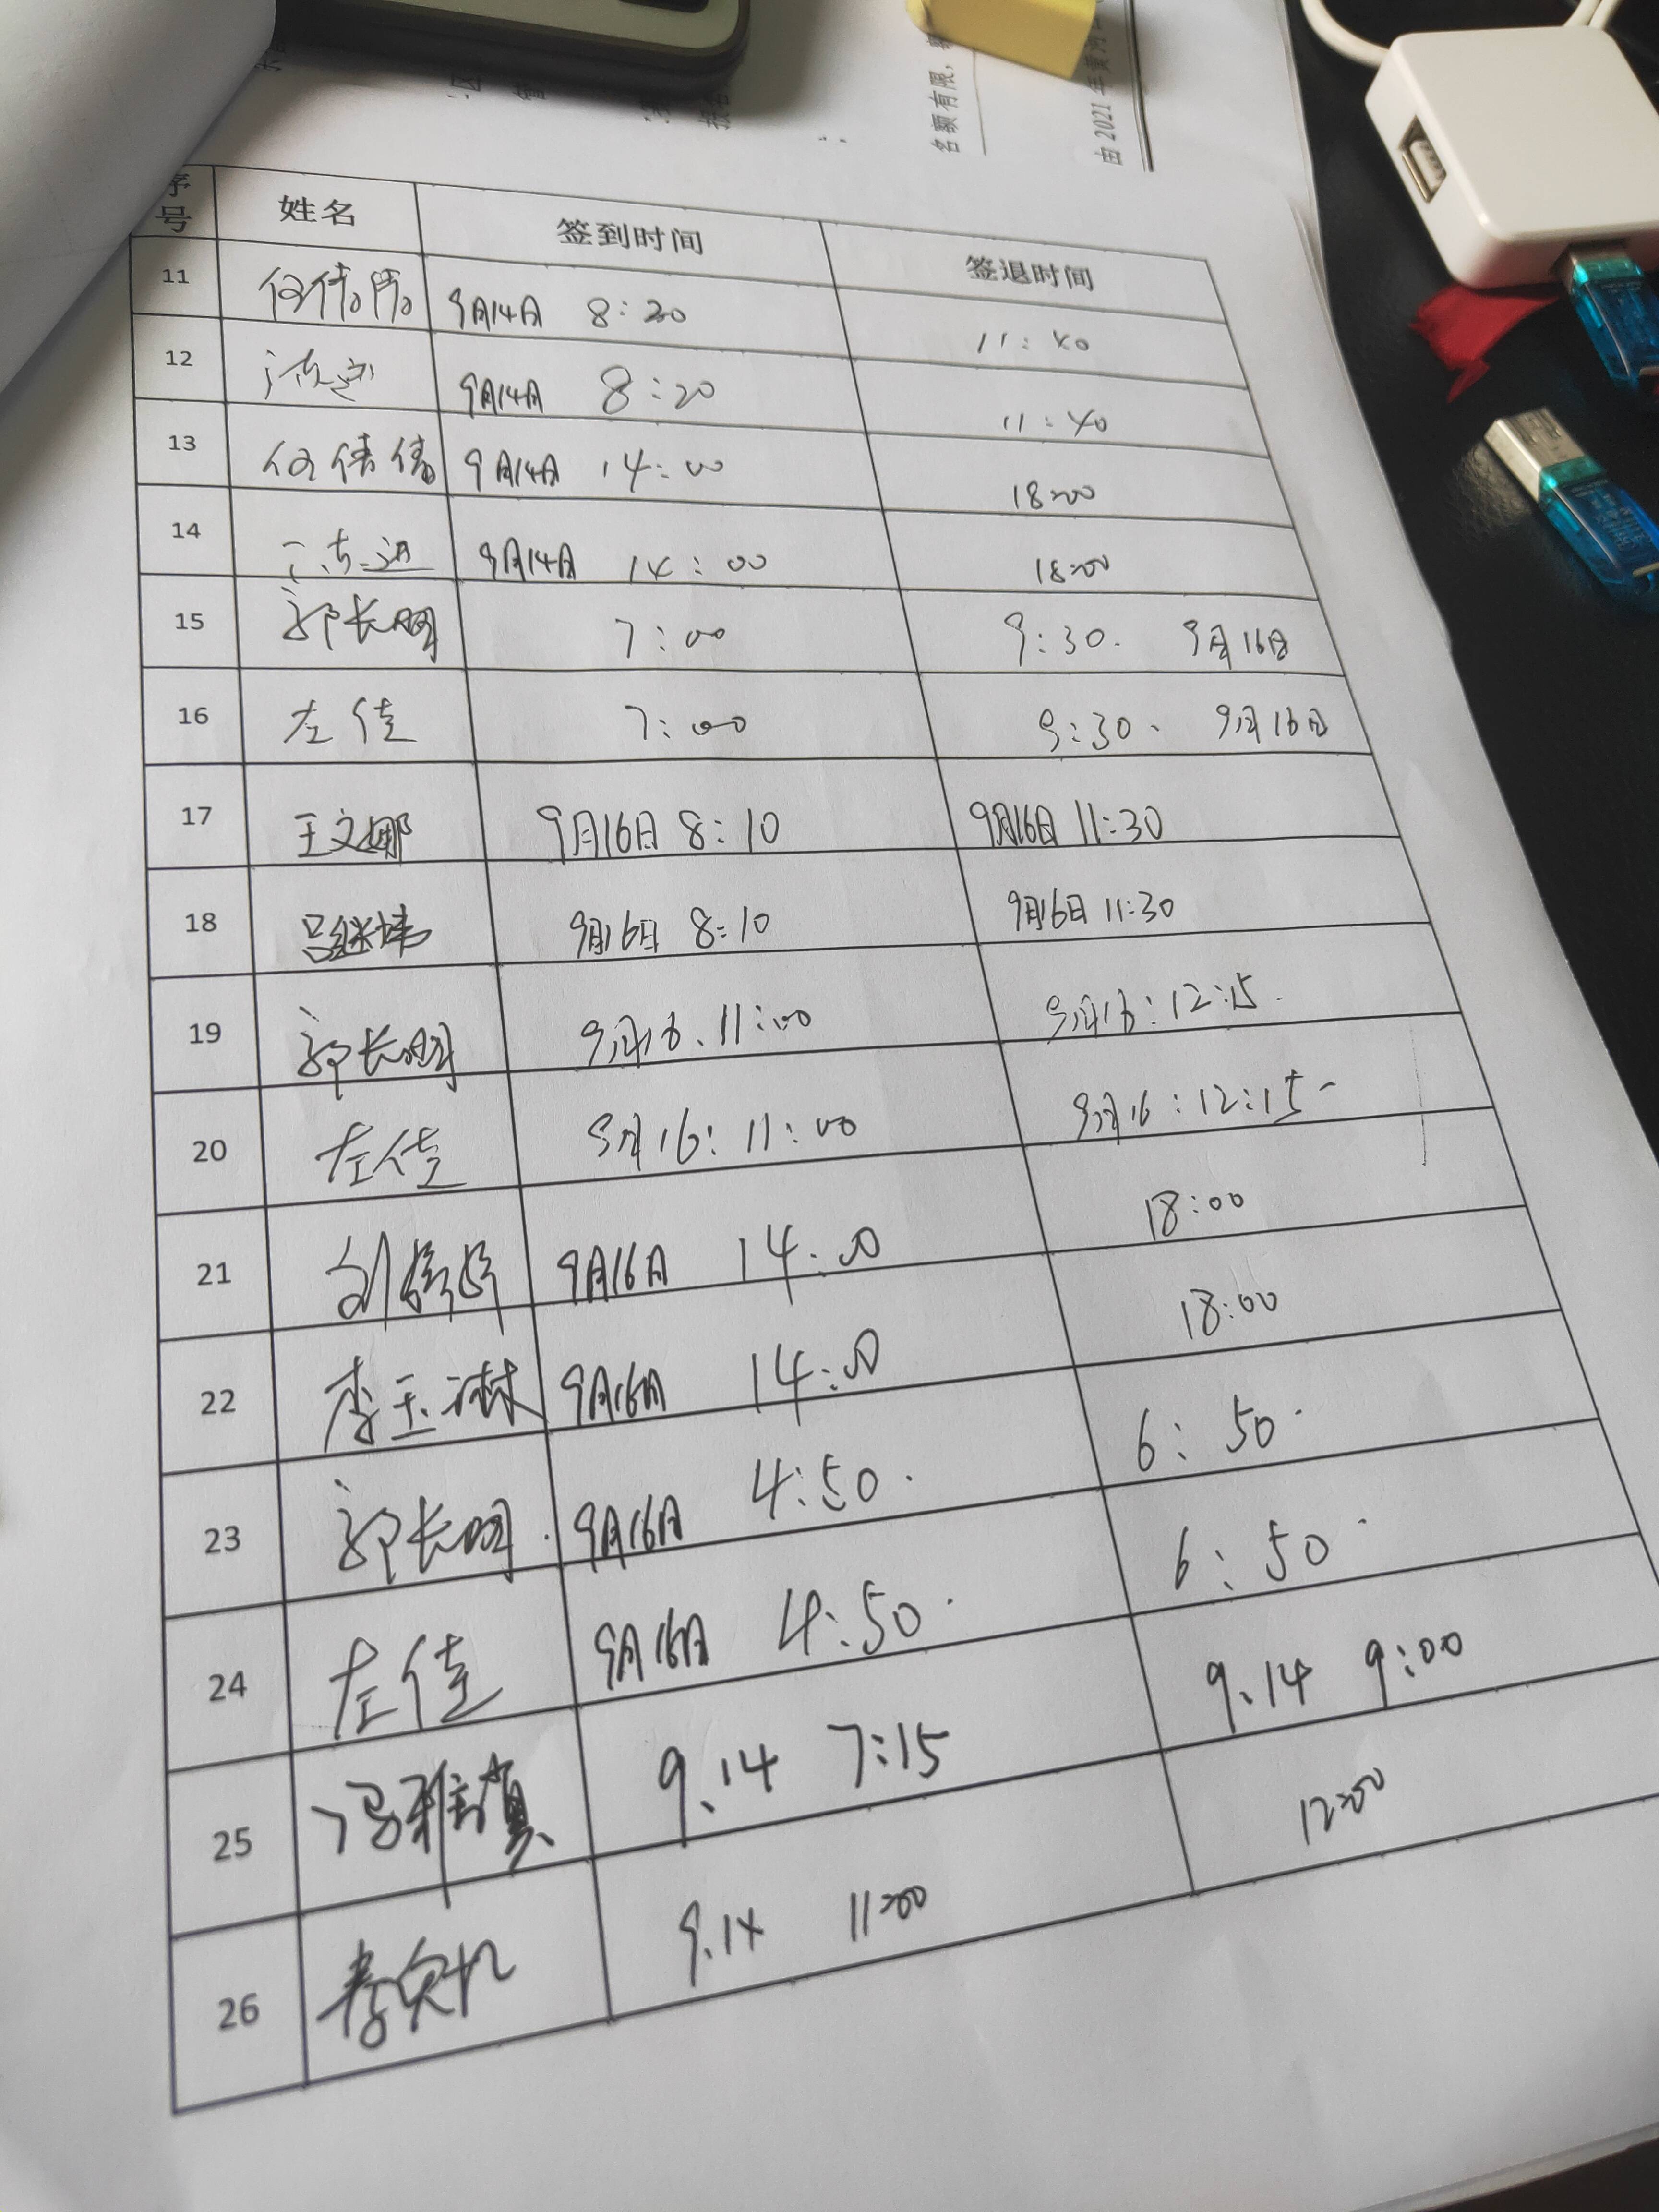 名额有限，
由 2021 年黄河
序号 姓名 签到时间 签退时间
11 9月14日 8:20 11:40
12 9月14日 8:20 11:40
13 何倩倩 9月14日 14:00 18:00
14 9月14日 14:00 18:00
15 郭长明 7:00 9:30. 9月16日
16 左佳 7:00 9:30. 9月16日
17 王文娜 9月16日 8:10 9月16日 11:30
18 吕继坤 9月16日 8:10 9月16日 11:30
19 郭长明 9月16. 11:00 9月16:12:15.
20 左佳 9月16: 11:00 9月16:12:15-
21 刘婷婷 9月16日 14:00 18:00
22 李玉琳 9月16日 14:00 18:00
23 郭长明. 9月16日 4:50. 6:50.
24 左佳 9月16日 4:50. 6:50.
25 冯雅真 9.14 7:15 9.14 9:00
26 9.14 11:00 12:00